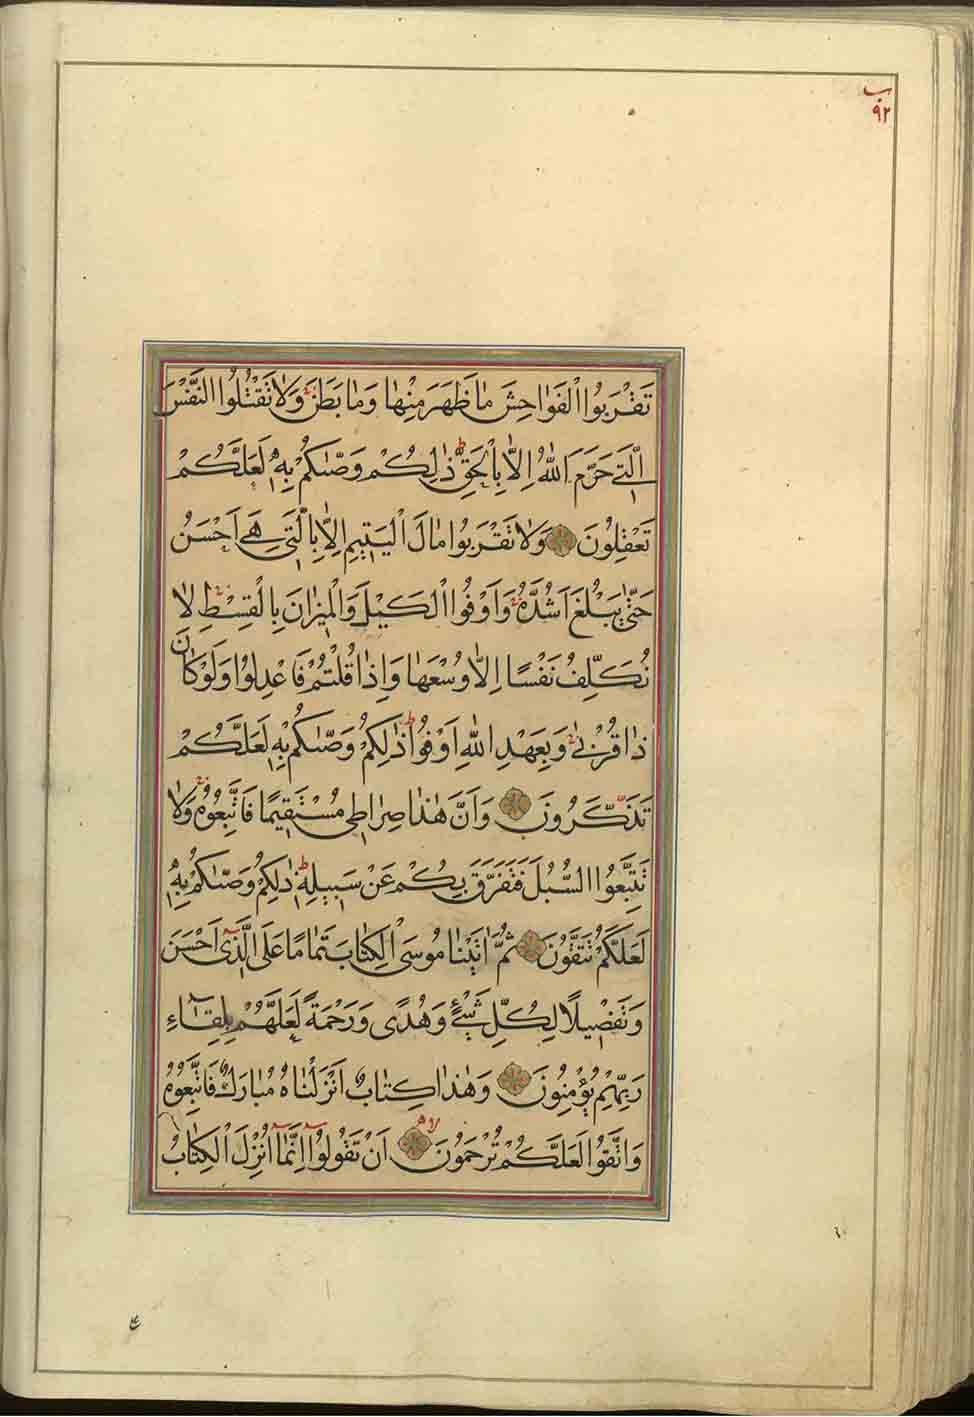 ب
٩٢
تَقْرَبُوا الْفَوَاحِشَ مَا ظَهَرَ مِنْهَا وَمَا بَطَنَ وَلَا تَقْتُلُوا النَّفْسَ
الَّتِي حَرَّمَ اللَّهُ إِلَّا بِالْحَقِّ ط ذَٰلِكُمْ وَصَّىٰكُمْ بِهِ لَعَلَّكُمْ
تَعْقِلُونَ وَلَا تَقْرَبُوا مَالَ الْيَتِيمِ إِلَّا بِالَّتِي هِيَ أَحْسَنُ
حَتَّىٰ يَبْلُغَ أَشُدَّهُ وَأَوْفُوا الْكَيْلَ وَالْمِيزَانَ بِالْقِسْطِ لَا
نُكَلِّفُ نَفْسًا إِلَّا وُسْعَهَا وَإِذَا قُلْتُمْ فَاعْدِلُوا وَلَوْ كَانَ
ذَا قُرْبَىٰ وَبِعَهْدِ اللَّهِ أَوْفُوا ط ذَٰلِكُمْ وَصَّىٰكُمْ بِهِ لَعَلَّكُمْ
تَذَكَّرُونَ وَأَنَّ هَٰذَا صِرَاطِي مُسْتَقِيمًا فَاتَّبِعُوهُ وَلَا
تَتَّبِعُوا السُّبُلَ فَتَفَرَّقَ بِكُمْ عَنْ سَبِيلِهِ ط ذَٰلِكُمْ وَصَّىٰكُمْ بِهِ
لَعَلَّكُمْ تَتَّقُونَ ثُمَّ آتَيْنَا مُوسَى الْكِتَابَ تَمَامًا عَلَى الَّذِي أَحْسَنَ
وَتَفْصِيلًا لِكُلِّ شَيْءٍ وَهُدًى وَرَحْمَةً لَعَلَّهُمْ بِلِقَاءِ
رَبِّهِمْ يُؤْمِنُونَ وَهَٰذَا كِتَابٌ أَنْزَلْنَاهُ مُبَارَكٌ فَاتَّبِعُوهُ
وَاتَّقُوا لَعَلَّكُمْ تُرْحَمُونَ لا أَنْ تَقُولُوا إِنَّمَا أُنْزِلَ الْكِتَابُ